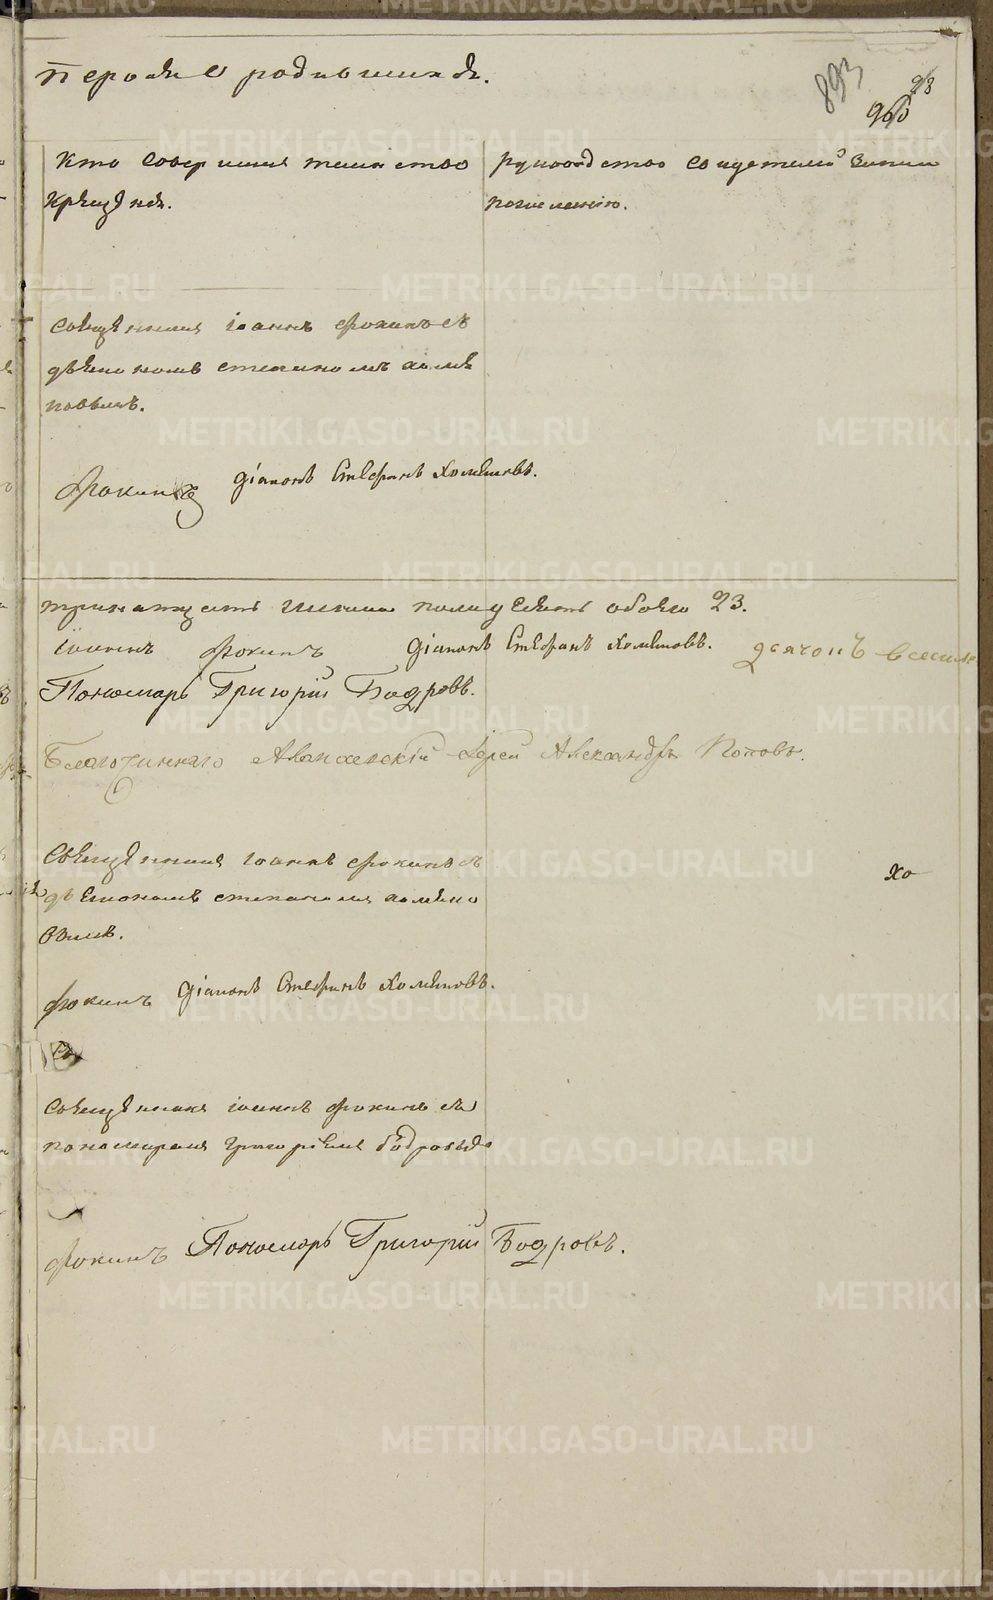 первая о родившихся.
893
Кто совершил таинство
крещения.
рукоприкладство свидетелей записи
по желанию.
священник иоаннъ фокинъ съ
дьякономъ стефаномъ хомя
ковымъ.
Фокинъ діаконъ Стефанъ Хомяковъ.
женска полу обоего 23.
иоаннъ Фокинъ діаконъ Стефанъ Хомяковъ. дьячокъ
Пономарь Григорій Бодровъ.
іерей Александръ Поповъ.
священник иоаннъ фокинъ съ
дьякономъ стефаномъ хомяко
вымъ.
Фокинъ діаконъ Стефанъ Хомяковъ.
священник иоаннъ фокинъ съ
пономаремъ григорьемъ бодровымъ
Фокинъ Пономарь Григорій Бодровъ.
METRIKI.GASO-URAL.RU